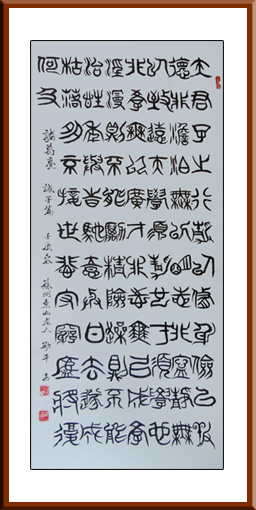 夫君子之行靜以修身儉以養
德非澹泊無以明志非寧靜無
以致遠夫學須靜也才須學也
非學無以廣才非志無以成學
淫漫則不能勵精險躁則不能
冶性年與時馳意與日去遂成
枯落多不接世悲守窮廬將復
何及
諸葛亮 誡子篇 壬辰 蘇州東山老人